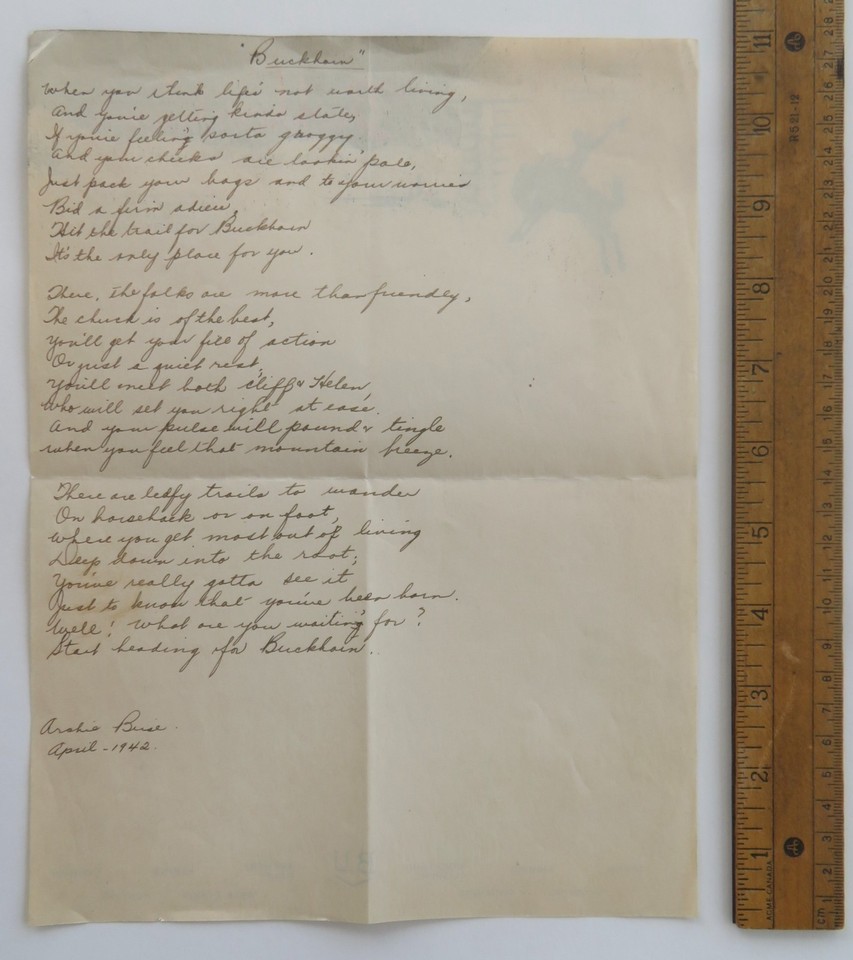 "Buckhorn"
When you think life's not worth living,
And you're getting kinda stale,
If you're feeling sorta groggy
And your cheeks are lookin' pale,
Just pack your bags and to your worries
Bid a firm adieu,
Hit the trail for Buckhorn
It's the only place for you.
There, the folks are more than friendly,
The chuck is of the best,
You'll get your fill of action
Or just a quiet rest,
You'll meet both Cliff & Helen,
Who will set you right at ease.
And your pulse will pound & tingle
When you feel that mountain breeze.
There are leafy trails to wander
On horseback or on foot,
Where you get most out of living
Deep down into the root;
You've really gotta see it
Just to know that you've been born.
Well! What are you waiting for?
Start heading for Buckhorn.
Archie
April - 1942.
11
10
9
8
7
6
5
4
3
2
1
R521-12
ACME CANADA
cm 1 2 3 4 5 6 7 8 9 10 11 12 13 14 15 16 17 18 19 20 21 22 23 24 25 26 27 28